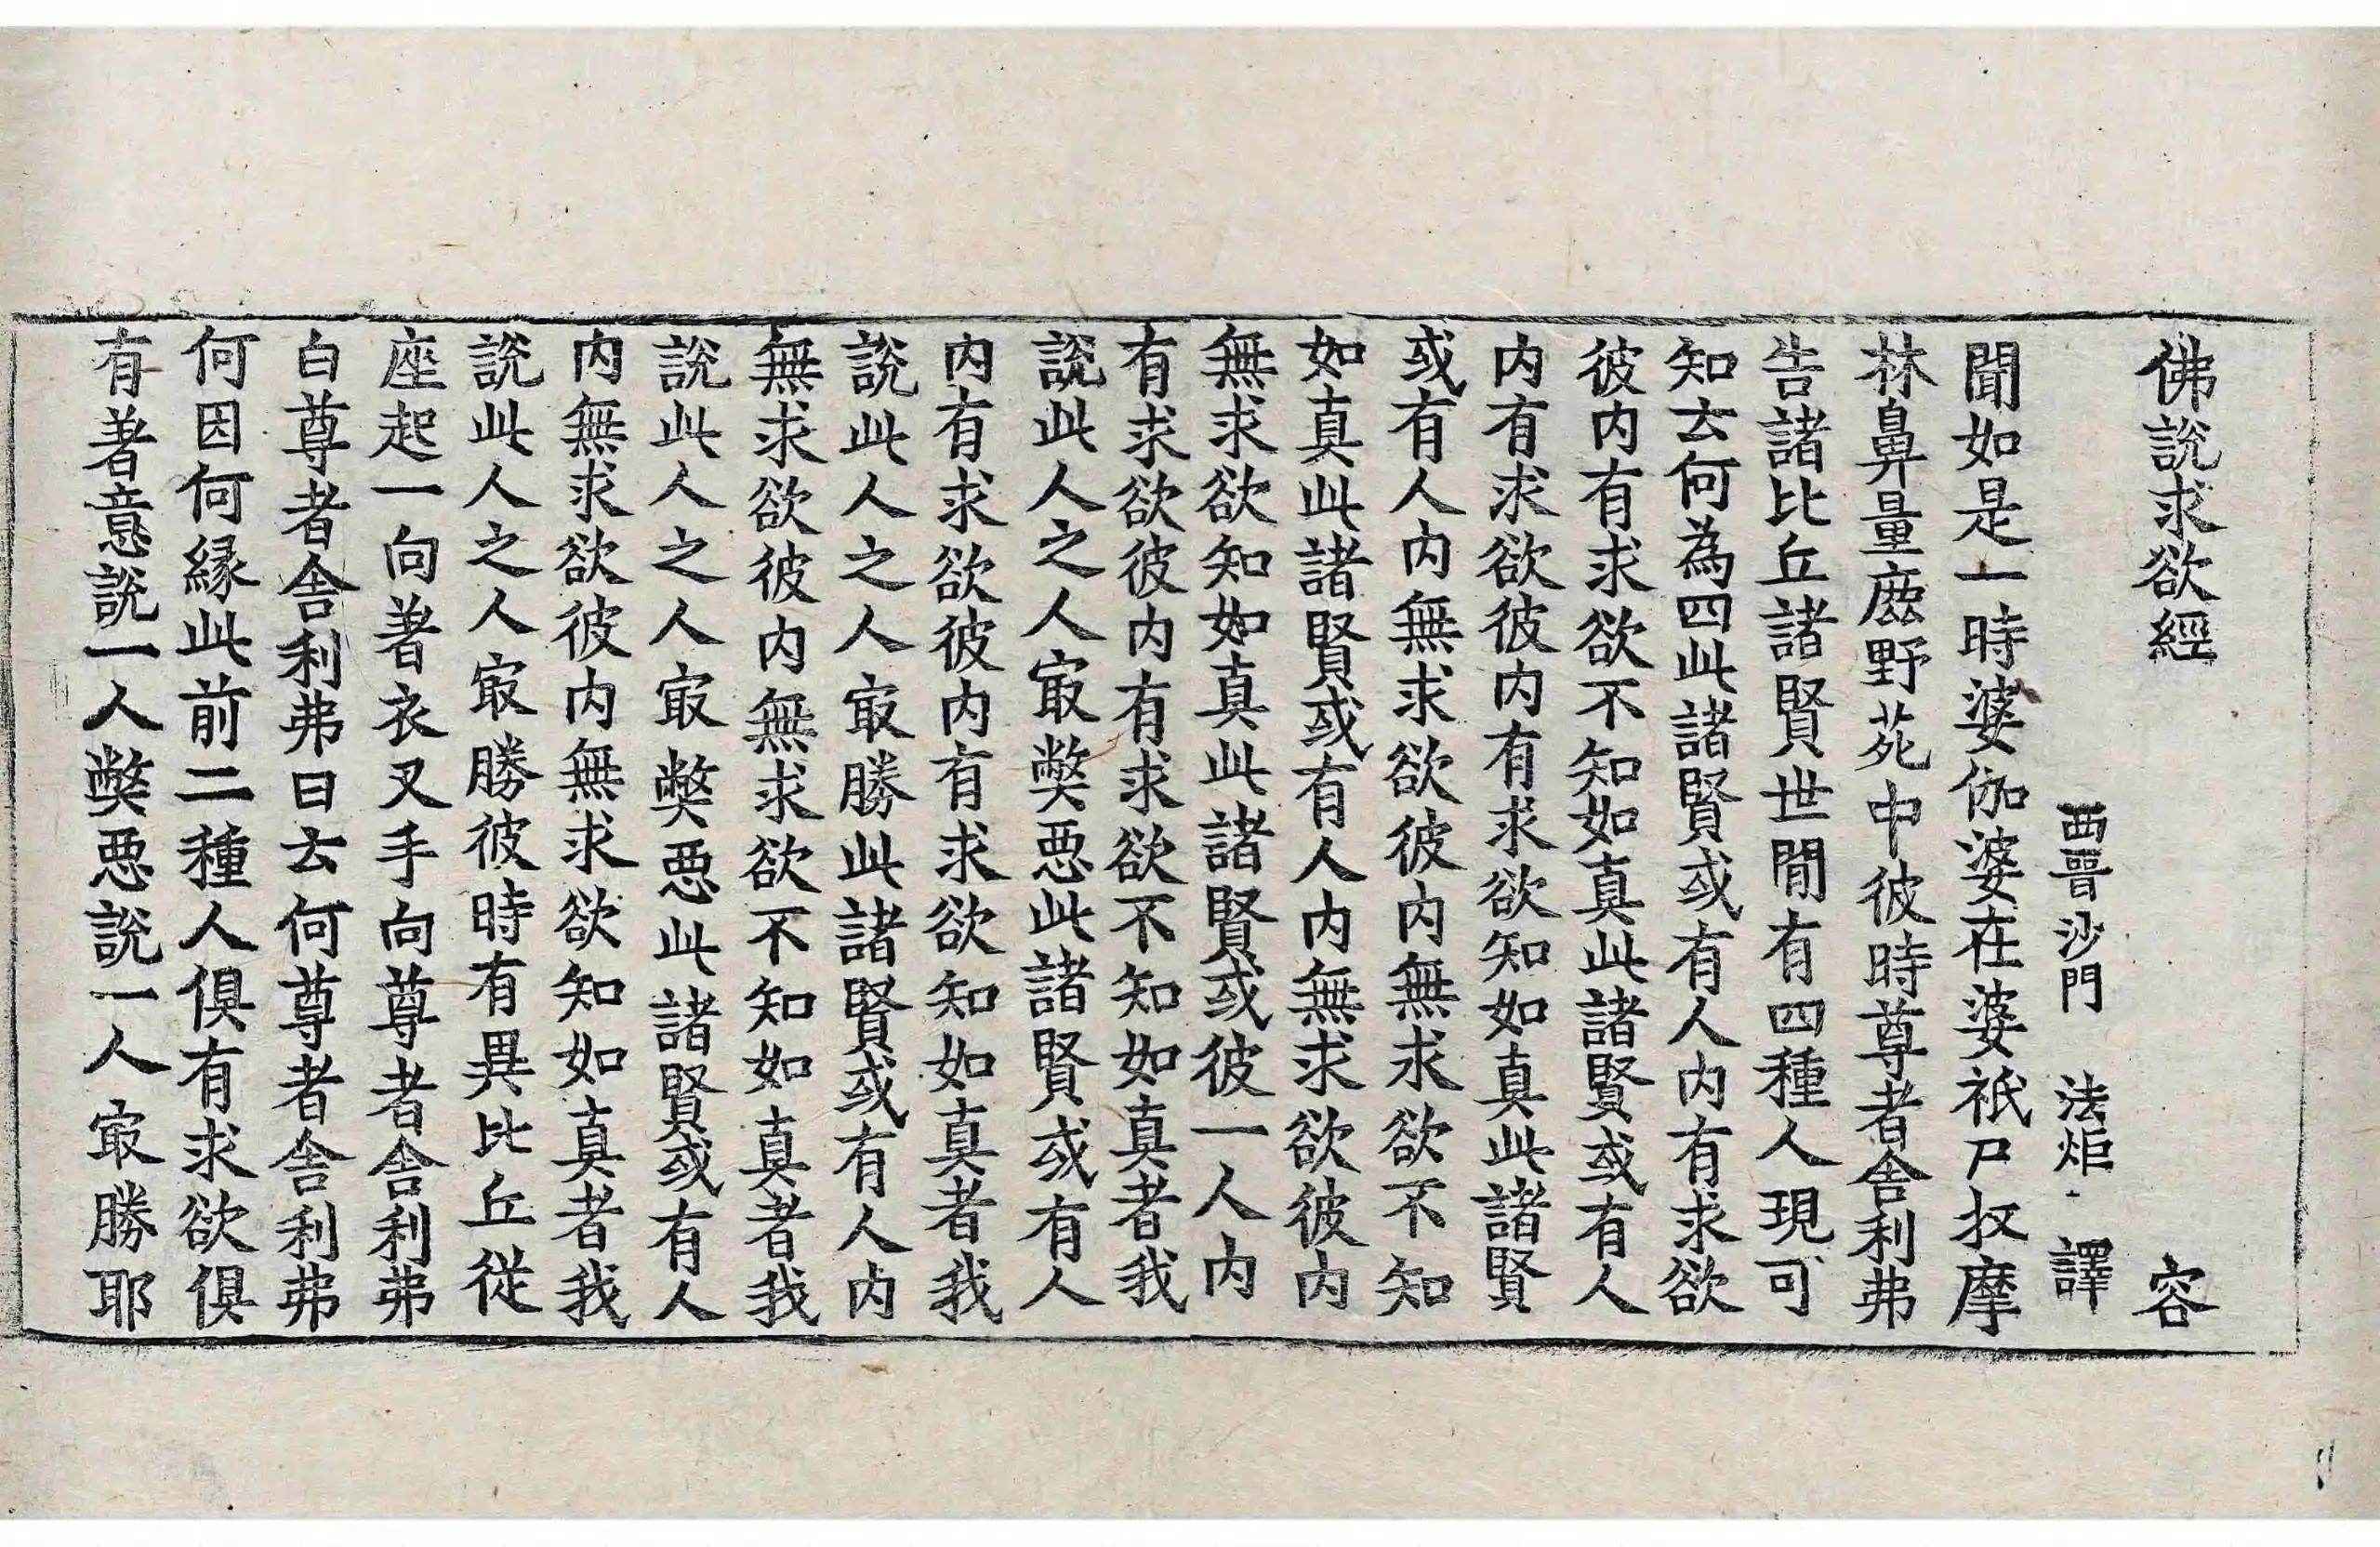 佛說求欲經 容
西晉沙門 法炬 譯
聞如是一時婆伽婆在婆祇尸收摩
林鼻量鹿野苑中彼時尊者舍利弗
告諸比丘諸賢世間有四種人現可
知云何為四此諸賢或有人內有求欲
彼內有求欲不知如真此諸賢或有人
內有求欲彼內有求欲知如真此諸賢
或有人內無求欲彼內無求欲不知
如真此諸賢或有人內無求欲彼內
無求欲知如真此諸賢或彼一人內
有求欲彼內有求欲不知如真者我
說此人之人㝡弊惡此諸賢或有人
內有求欲彼內有求欲知如真者我
說此人之人㝡勝此諸賢或有人內
無求欲彼內無求欲不知如真者我
說此人之人㝡弊惡此諸賢或有人
內無求欲彼內無求欲知如真者我
說此人之人㝡勝彼時有異比丘從
座起一向著衣叉手向尊者舍利弗
白尊者舍利弗曰云何尊者舍利弗
何因何緣此前二種人俱有求欲俱
有著意說一人弊惡說一人㝡勝耶